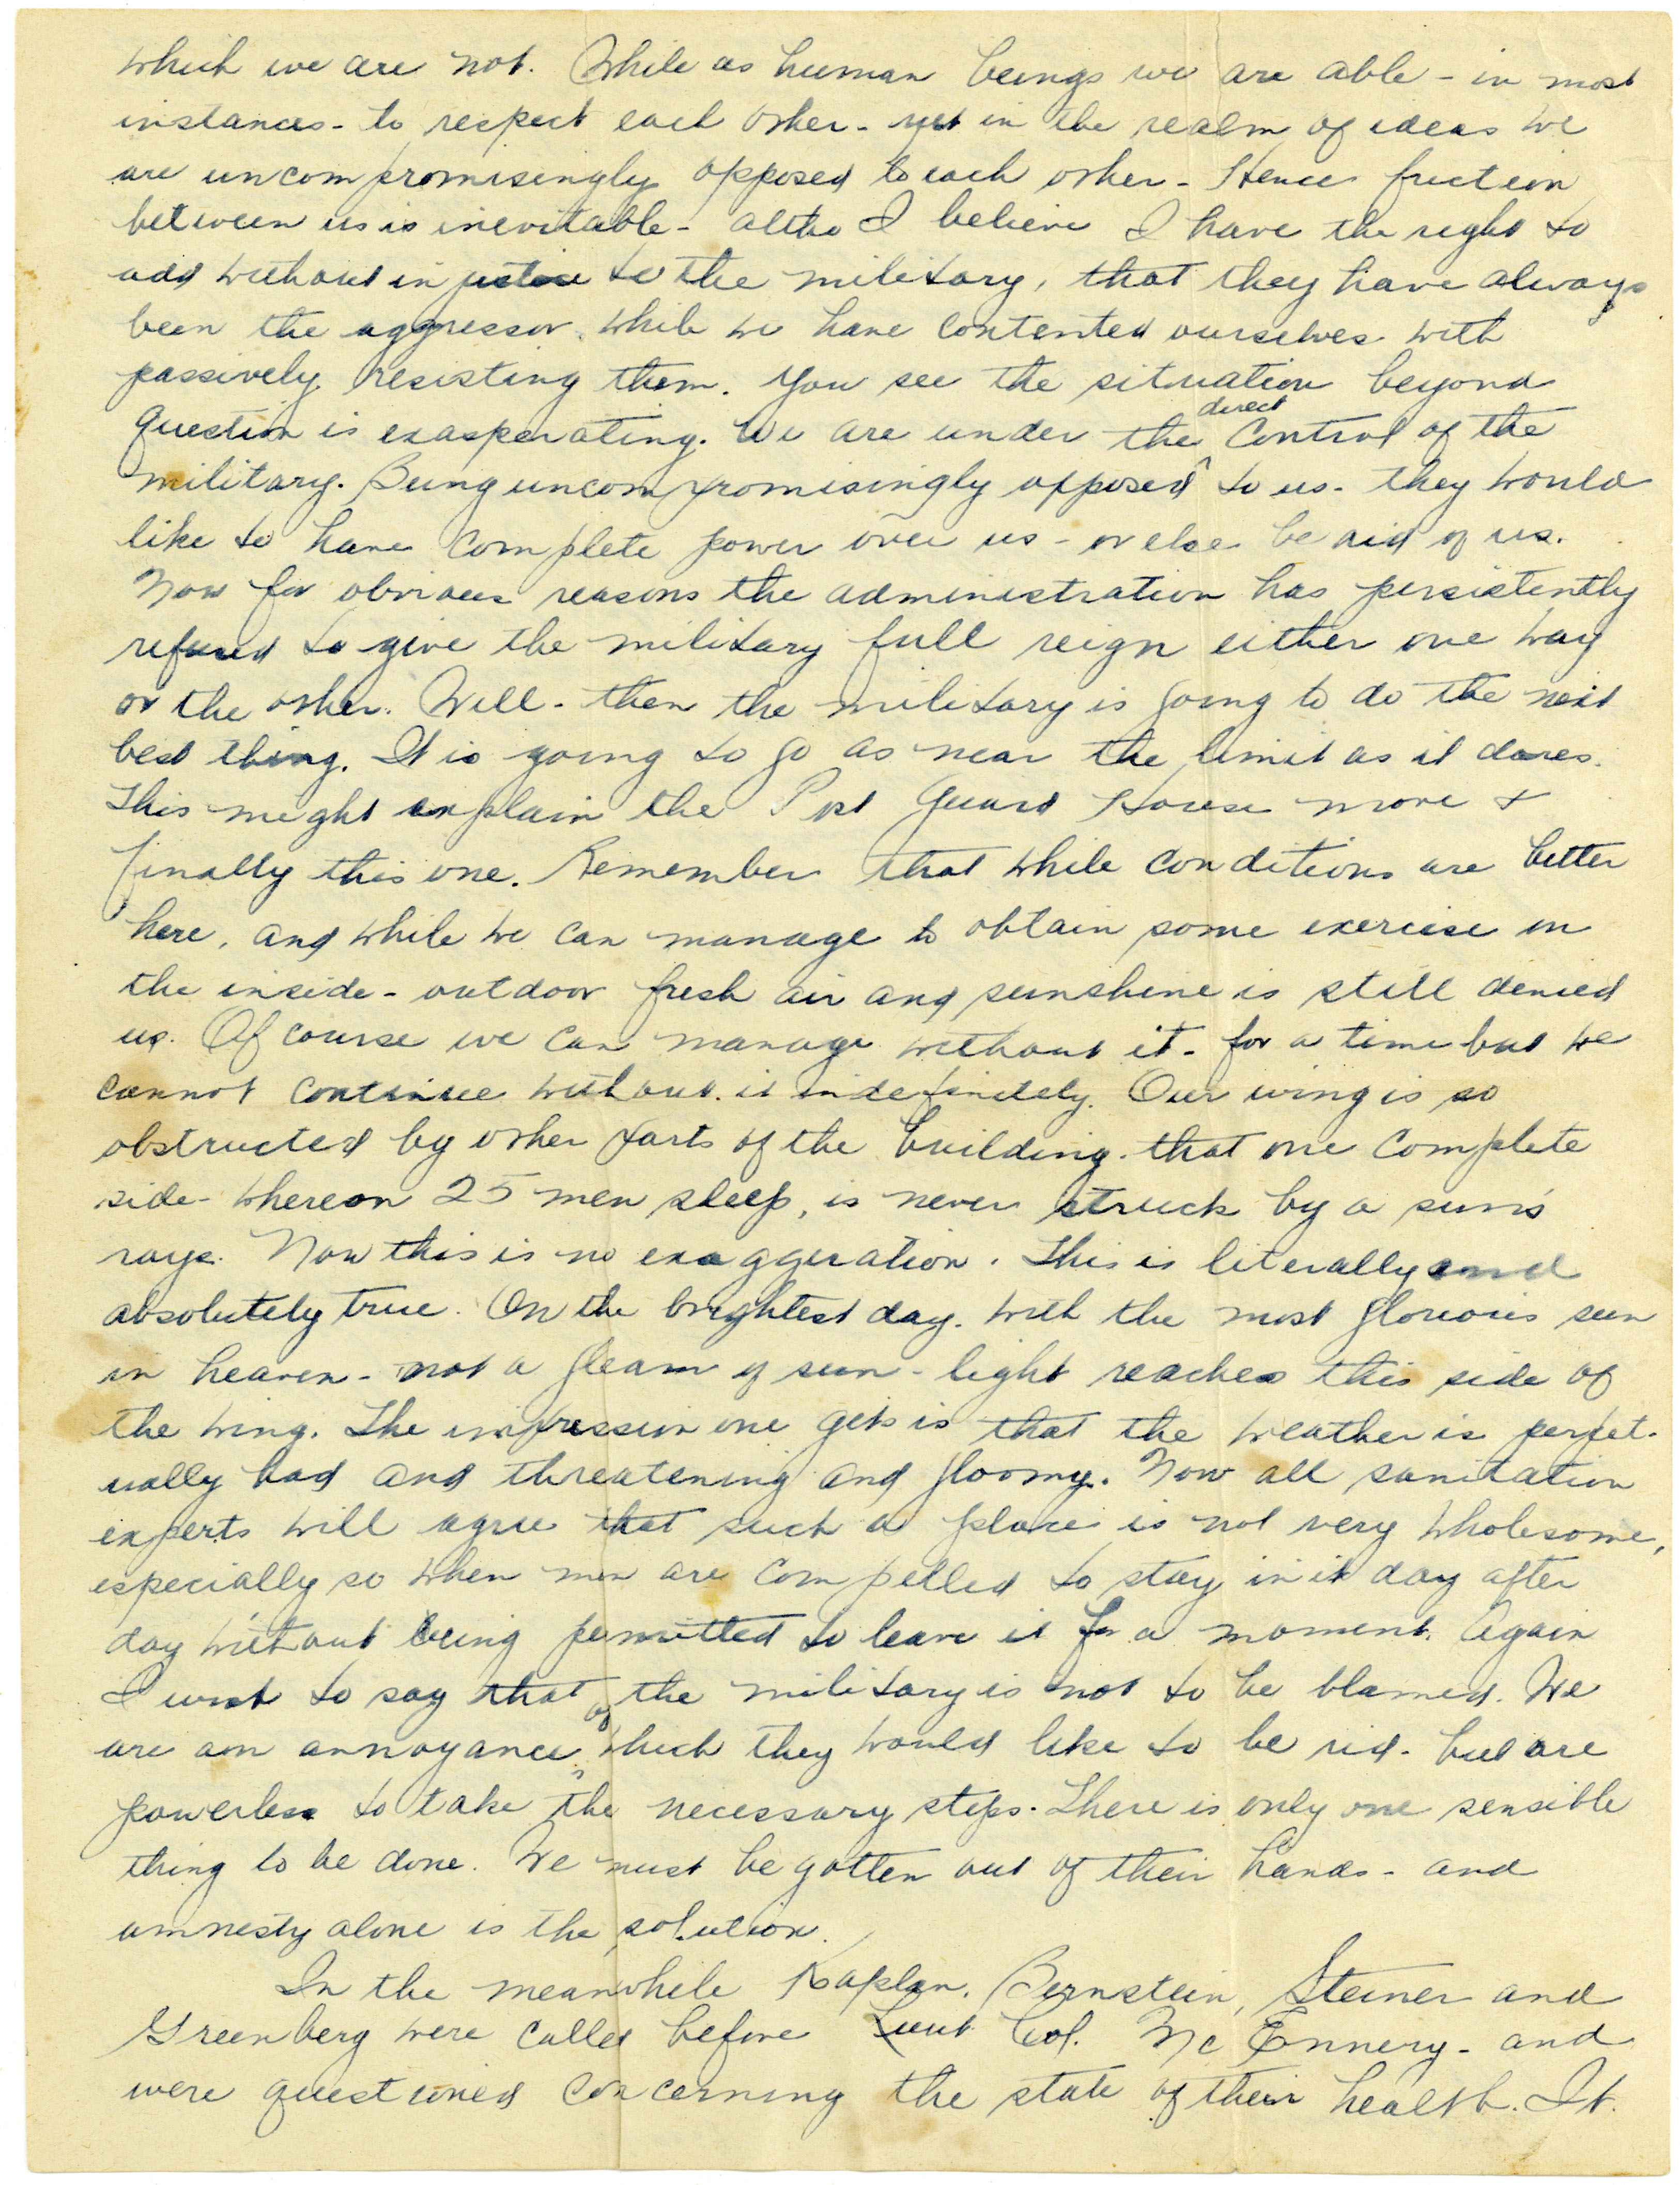 which we are not. While as human beings we are able - in most
instances - to respect each other - yet in the realm of ideas we
are uncompromisingly opposed to each other - Hence friction
between us is inevitable - altho I believe I have the right to
add without injustice to the military, that they have always
been the aggressor, while we have contented ourselves with
passively resisting them. You see the situation beyond
question is exasperating. We are under the direct control of the
military. Being uncompromisingly opposed to us - they would
like to have complete power over us - or else be rid of us.
Now for obvious reasons the administration has persistently
refused to give the military full reign either one way
or the other. Well - then the military is going to do the next
best thing. It is going to go as near the limit as it dares.
This might explain the Post Guard House move &
finally this one. Remember that while conditions are better
here, and while we can manage to obtain some exercise in
the inside - outdoor fresh air and sunshine is still denied
us. Of course we can manage without it - for a time but we
cannot continue without it indefinitely. Our wing is so
obstructed by other parts of the building that one complete
side - whereon 25 men sleep, is never struck by a sun's
rays. Now this is no exaggeration. This is literally and
absolutely true. On the brightest day - with the most glorious sun
in heaven - not a gleam of sun-light reaches this side of
the wing. The impression one gets is that the weather is perpet-
ually bad and threatening and gloomy. Now all sanitation
experts will agree that such a place is not very wholesome,
especially so when men are compelled to stay in it day after
day without being permitted to leave it for a moment. Again
I wish to say that the military is not to be blamed. We
are an annoyance of which they would like to be rid - but are
powerless to take the necessary steps. There is only one sensible
thing to be done. We must be gotten out of their hands - and
amnesty alone is the solution.
In the meanwhile Kaplan, Bernstein, Steiner and
Greenberg were called before Lieut Col. McEnnery - and
were questioned concerning the state of their health. It